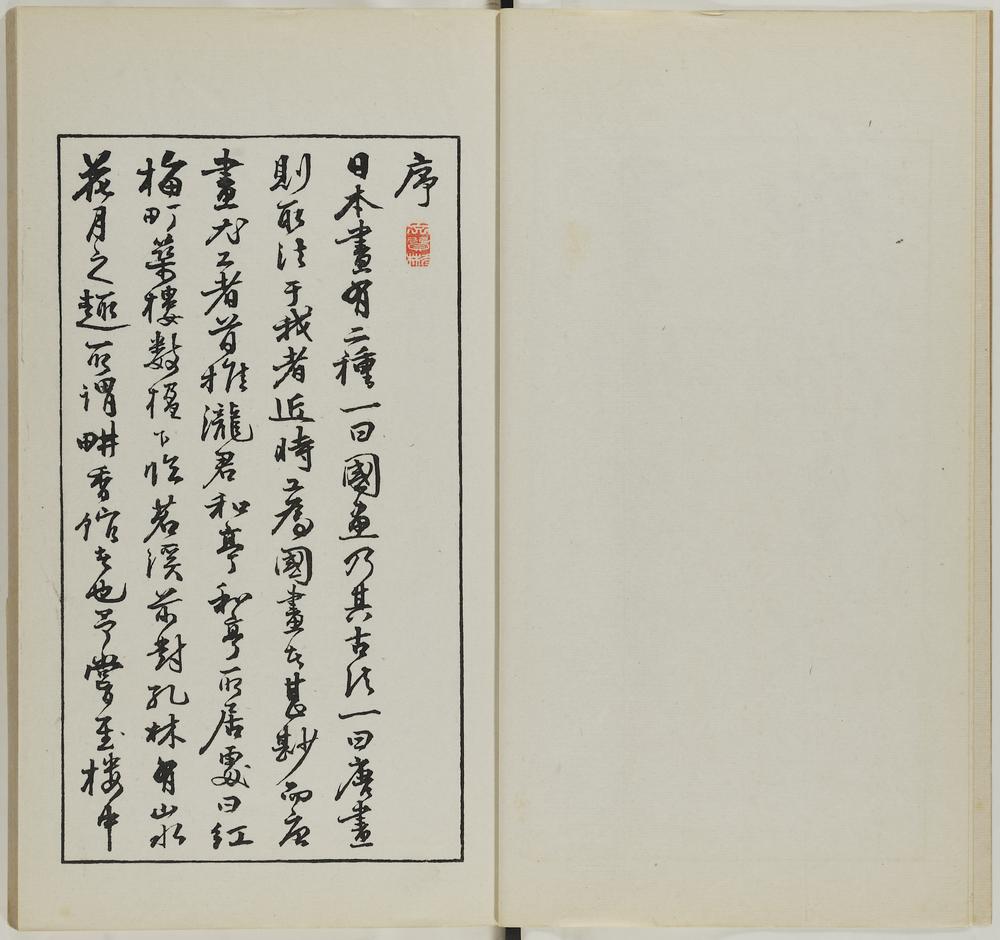 序
日本畫有二種一曰國畫乃其古法一曰唐畫
則取法于我者近時為國畫者甚尠而唐
畫尤工者首推瀧君和亭和亭所居處曰紅
梅町築樓數楹下臨茗溪前對孔林有山水
花月之趣所謂畊香館者也予嘗至樓中